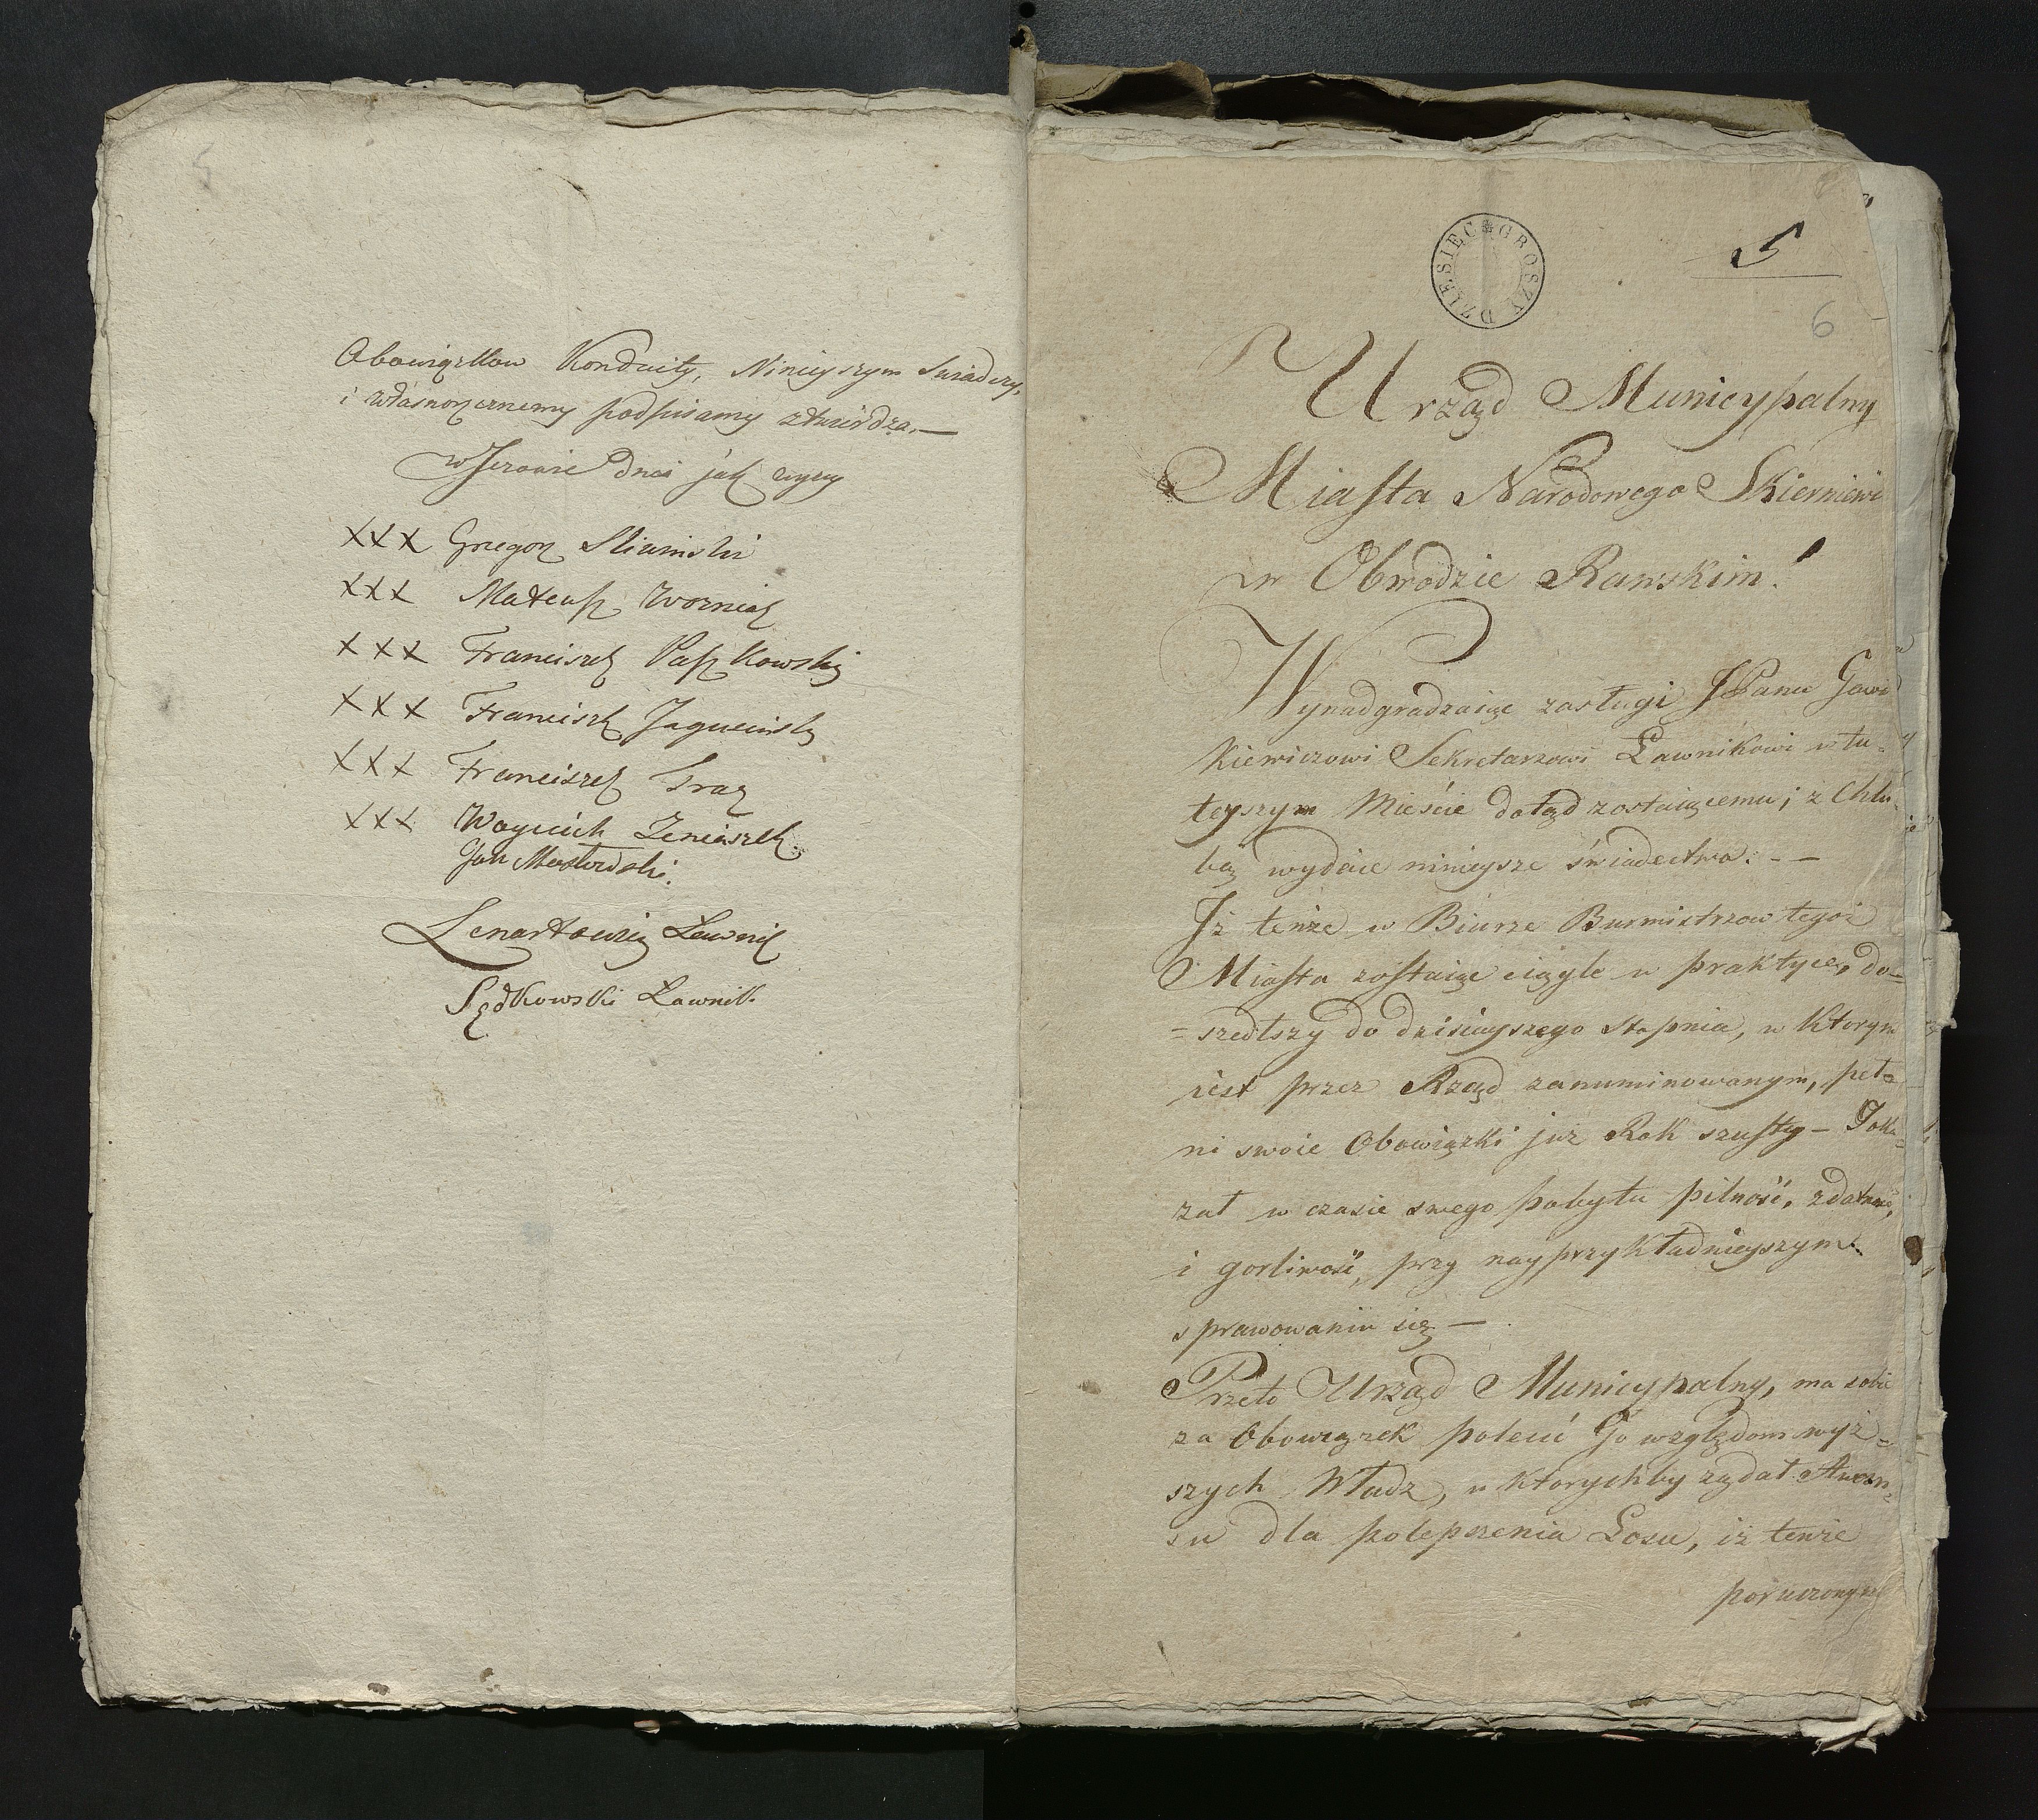 5
Obowiązkow Konduity, Nineyszym Swiadczy,
i własnoręcznemy podpisamy ztwiŕdza. —
w Jezowie dnia jak wyzy
XXX Grzegorz Sliwinski
XXX Mateusz Wozniak
XXX Franciszek Paszkowski
XXX Franciszek Jagucinski
XXX Franciszek
XXX Woyciech Zeniaszek
Jan
Lenartowicz Ławnik
Sędkowski Ławnik
DZIESIĘC GROSZY
5
6
Urząd Municypalny
Miasta Narodowego Skierniewi
w Obwodzie Rawskim!
Wynadgradzaiąc zasługi JPanu Gawi
kiewiczowi Sekretarzowi Ławnikowi w tu-
teyszym Mieście dotąd zostaiącemu; z Chlu-
bą wydaie ninieysze świadectwo: - —
Jż tenże w Biurze Burmistrzow tegoż
Miasta zostaiąc ciągle w praktyce, do-
= szedłszy do dzisieyszego Stopnia, w ktorym
iest przez Rząd zanuminowanym, peł-
ni swoie Obowiązki już Rok szusty — Poka-
zał w czasie swego pobytu pilność, zdatność,
i gorliwość, przy nayprzykładnieyszym
sprawowaniu się —
Przeto Urząd Municypalny, ma sobie
za Obowiązek polecić Go względom wyż=
szych Władz, u ktorychby ządał Awan=
su dla polepszenia Losu, iż tenże
poruczonych